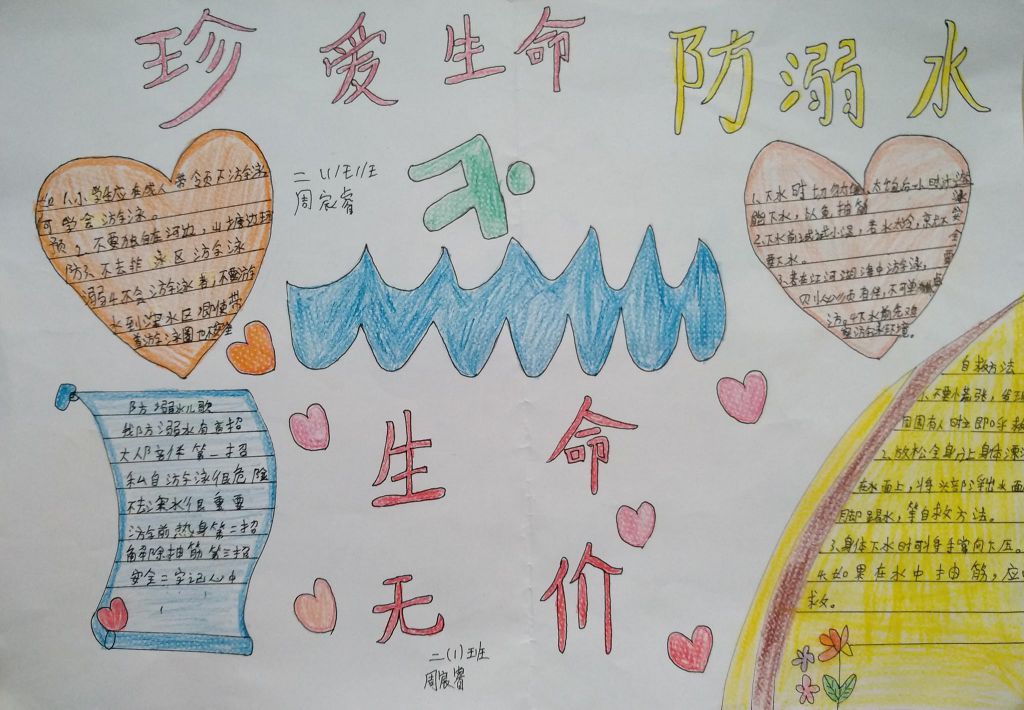 珍爱生命 防溺水
二(1)班
周宸睿
1.小学生应在成人带领下游泳
学会游泳。
2.不要独自在河边,山塘边玩
3.不去非泳区游泳
4.不会游泳者,不要游
到深水区,即使带
着游泳圈也不安全
如何预防溺水
1.下水时切勿饱
能下水,以免抽筋
2.下水前试试水温,若水太冷,就不
要下水。
3.若在江河湖海中游泳,
必须有伴,不可单独
游。
4.下水前
察游泳环境。
防溺水儿歌
我防溺水有高招
大人陪伴第一招
私自游泳很危险
不去深水很重要
游前热身第二招
解除抽筋第三招
安全二字记心中
生命
无价
二(1)班
周宸睿
自救方法
1.不要慌张,发现
周围有人时立即呼救
2.放松全身,让身体漂浮
在水面上,将头部浮出水面
用脚踢水,等自救方法。
3.身体下水时可将手掌向下压。
4.如果在水中抽筋,应
救。